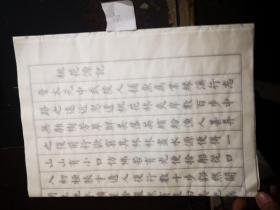 桃花源記
晉太元中武陵人捕魚為業緣溪行忘
路之遠近忽逢桃花林夾岸數百步中
無雜樹芳草鮮美落英繽紛漁人甚異
之復前行欲窮其林林盡水源便得一
山山有小口仿佛若有光便捨船從口
入初極狹纔通人復行數十步豁然開